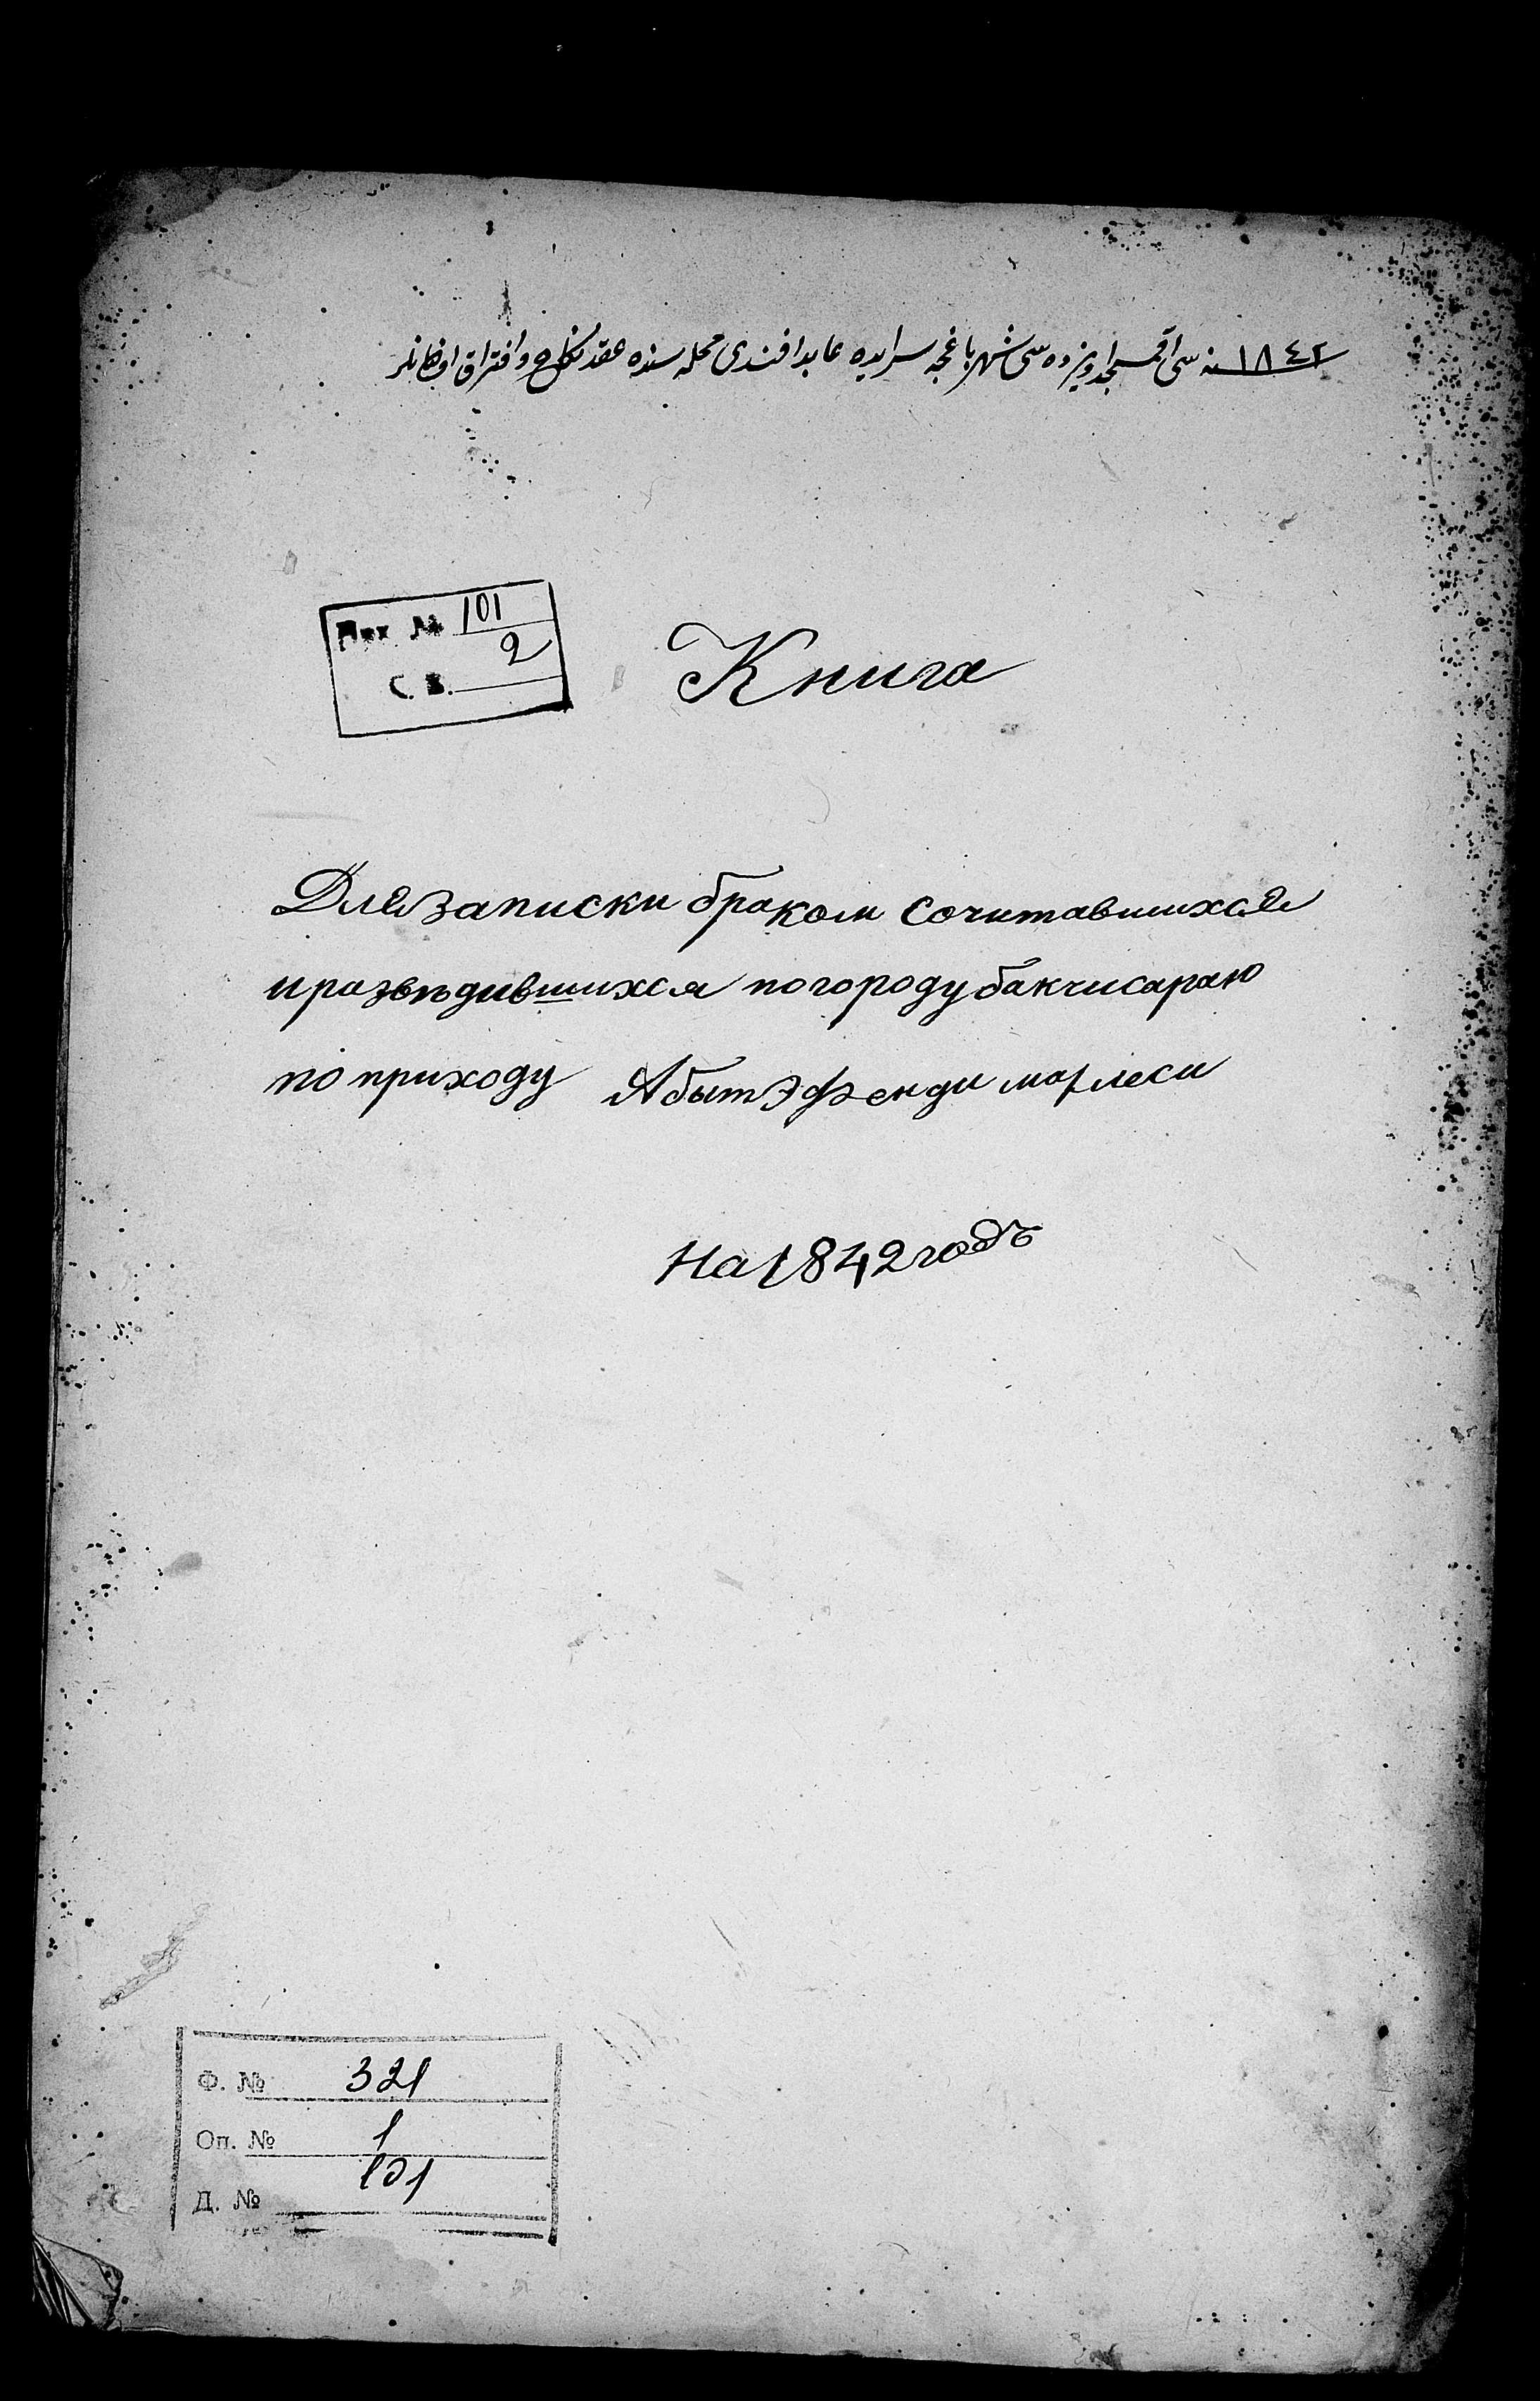 ١٨٤٢ سنه سی اقمسجد اویزده سی شهر باغچه سرایده عابد افندی محله سنده عقد نکاح و افتراق اولخانلر
Арх № 101
2
С. В.
Книга
Для записки браком сочитавшихся
и разведившихся по городу бакчисараю
по приходу Абыт Эфенди маглеси
На 1842 годъ
Ф. № 321
Оп. № 1
Д. № 101